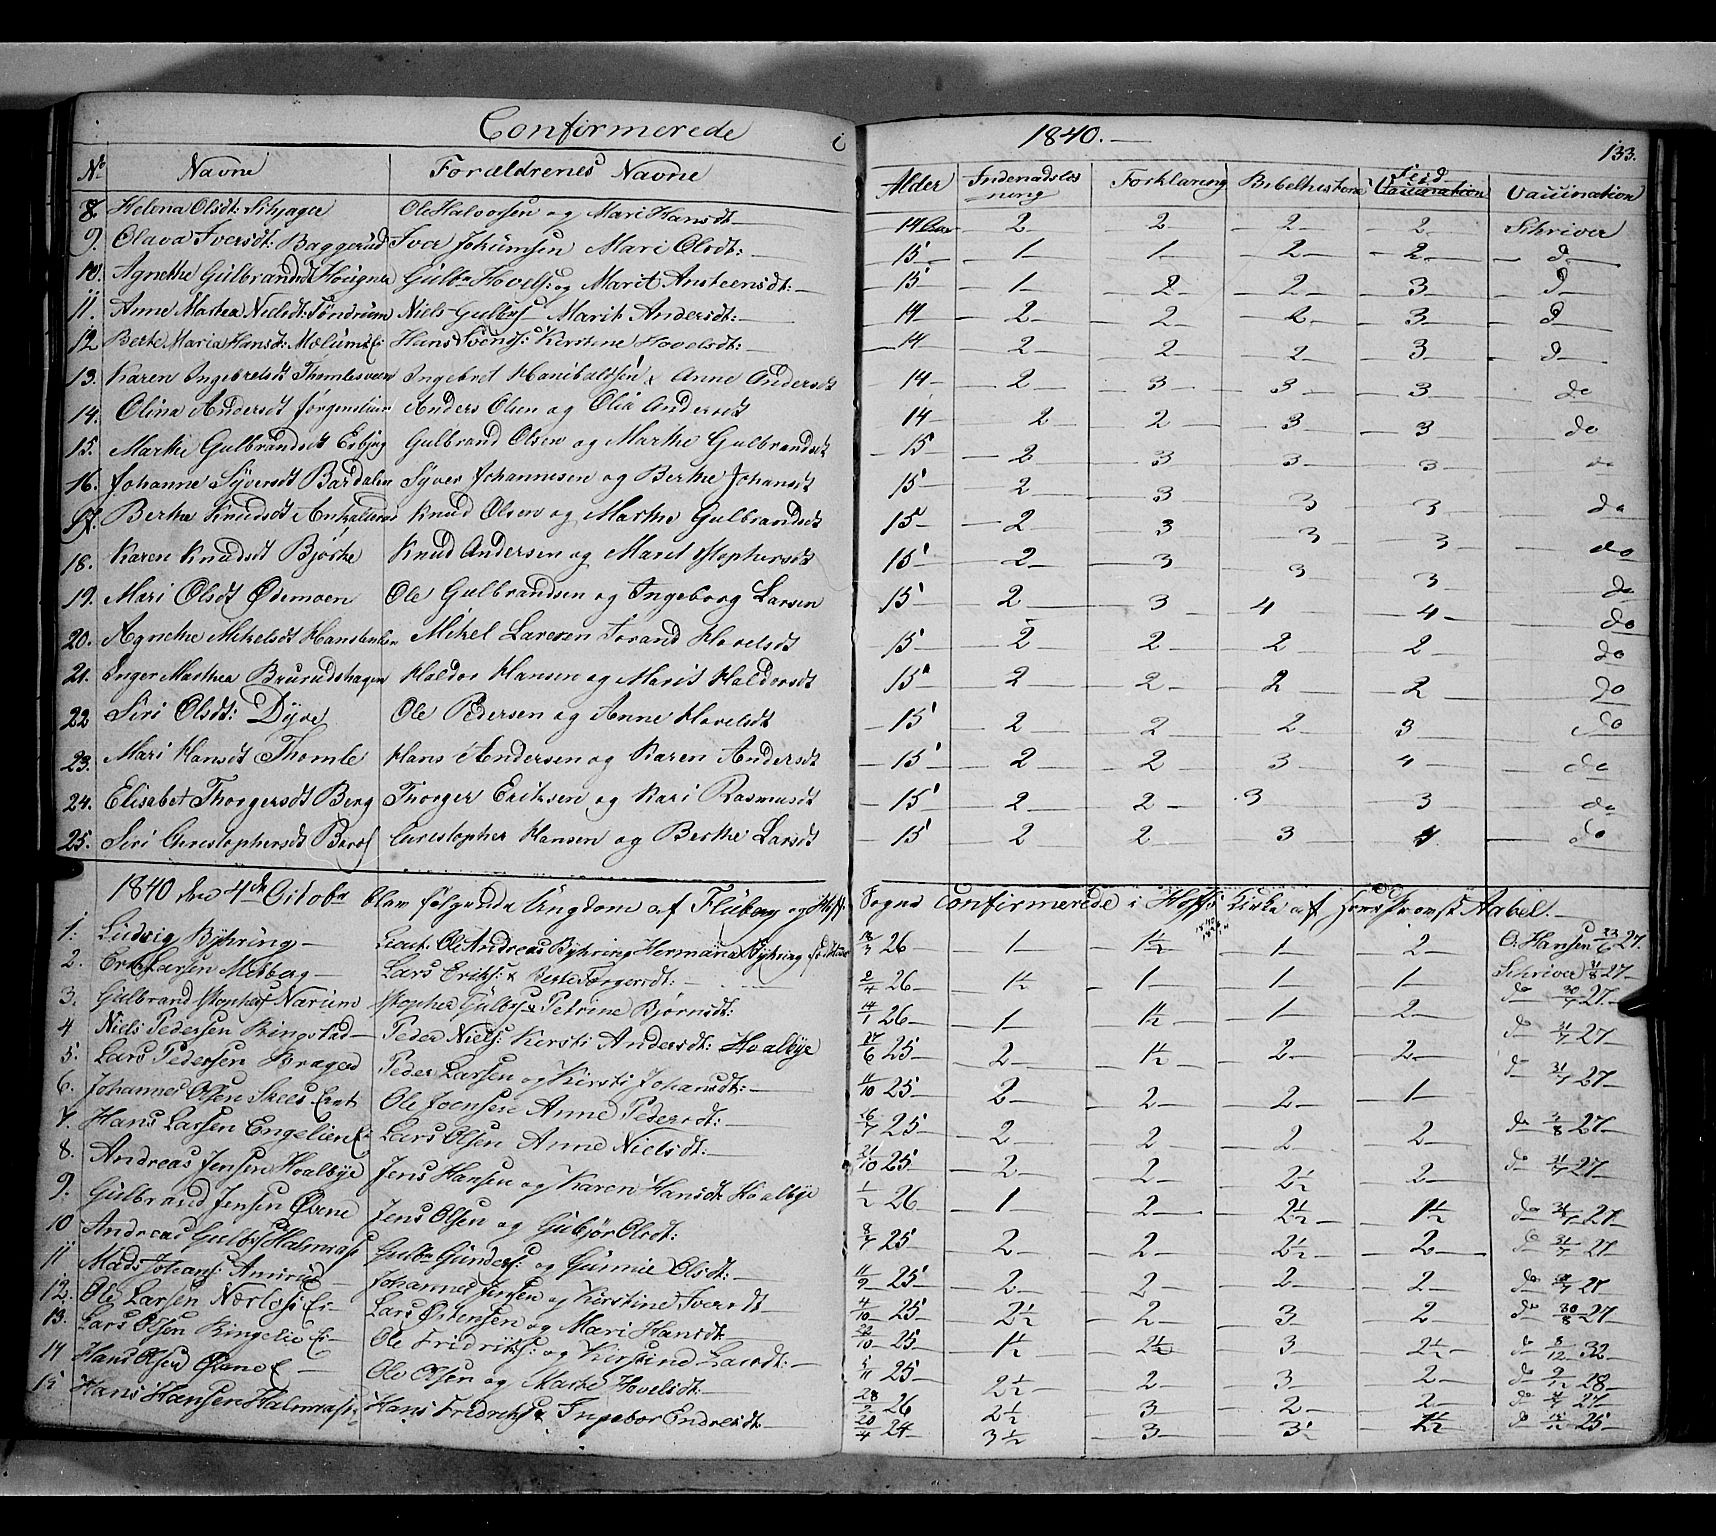 Confirmerede i 1840.— 133.
No Navne Forældrenes Navne Alder Indenadslesning Forklaring Bibelhistorie Flid Vaccination
8. Helena Olsdt: Ole Halvorsen og Mari Hansdt 14 Aar 2 2 2 2 Schriver
9. Olava Iversdt: Baggerud Iver Mari Olsdt:— 15 1 1 2 2 do
10. Agnethe Gulbrandsdt Gulbr Hovels: og Marit Ansteensdt:— 15 1 2 2 3 do
11. Anne Marthea Nielsdt: Tøndrum Niels Gulbrs Marit Andersdt:— 14 2 2 2 3 do
12 Berte Maria Hansdt: Hans Svends: Kirstine Hovelsdt:— 14 2 2 2 3 do
13. Karen Ingebretsdt Thomlesveen Ingebret Hanibaldsen & Anne Andersdt 14 2 3 3 3 do
14. Olina Andersdt Anders Olsen og Olia Andersdt 14 2 2 3 3 do
15. Marthe Gulbrandsdt Gulbrand Olsen og Marthe Gulbrandsdt 15 2 3 3 3 do
16. Johanne Syversdt Bardalen Syver Johannesen og Berthe Johansdt 15 2 3 3 3 do
17. Berthe Knudsdt Knud Olsen og Marthe Gulbrandsdt 15 2 3 3 3 do
18. Karen Knudsdt Bjørke Knud Andersen og Maret Stophersdt 15 2 3 3 3 do
19. Mari Olsdt Ødemoen Ole Gulbrandsen og Ingeborg Larsen 15 2 3 4 4 do
20. Agnethe Mikelsdt Mikel Larsen Torand Hovelsdt 15 2 2 2 2 do
21. Inger Marthea Baurudshagen Haldor Hansen og Marit Haldorsdt 15 2 2 2 2 do
22 Siri Olsdt: Dyve Ole Pedersen og Anne Hovelsdt 15 2 2 2 3 do
23. Mari Hansdt Thomle Hans Andersen og Karen Andersdt 15 2 2 3 4 do
24. Elisabet Thorgersdt Berg Thorger Eriksen og Kari Rasmusdt 15 2 2 3 3 do
25. Siri Christophersdt Christopher Hansen og Berthe Larsdt 15 2 2 3 4 do
1840 den 4de Octobr blev følgende Ungdom af Fluberg og Hoffs Sogne confirmerede i Hoffs Kirke af Hans Provst Aabel.—
1. Ludvig Byhring— Leut. Ole Andreas Byhring Hermana Byhring 18/3 26 1 1½ 1 2 O. Hansen 23/6 27.
2. Erik Larsen Melberg— Lars Eriks: & Berte Torgersdt:— 2/4 26 1½ 1 1 1 Schriver 31/8 27
3. Gulbrand Stophers Narum Stopher Gulbrs & Petrine Bjørnsdt:— 14/1 26 1 1½ 1 2 do 30/7 27
4 Niels Pedersen Ringstad— Peder Niels: Kersti Andersdt: Hoalbye 27/6 25 2 1½ 2 2 do 31/7 27
5. Lars Pedersen Braged Peder Larsen og Kirsti Johansdt:— 11/10 25 2 2 2 1 do 31/7 27
6. Johannes Olsen Ole Joensen Anne Pedersdt:— 26/7 25 2 2 2 2 do 3/8 27
7. Hans Larsen Engelien Ei Lars Olsen Anne Nielsdt:— 21/10 25 2 2 2½ 2 do 31/7 27
8. Andreas Jensen Hoalbye Jens Hansen og Karen Hansdt Hoalbye 1/2 26 1 2 2½ 1½ do 31/7 27
9. Gulbrand Jensen Øvene Jens Olsen og Gubjør Olsdt: 8/7 25 2 2 2½ 2 do 31/7 27
10 Andreas Gulbrs: Gulbr Gunders: og Gunnie Olsdt:— 11/9 25 2 2 2 2 do 27
11 Mads Johans: Amrud Johannes Jensen og Kirstine Iversdt— 4/10 25 2½ 2 3 2 do 30/8 27
12. Ole Larsen Ei— Lars Østensen og Mari Hansdt 22/10 25 1½ 2½ 3 2½ do 8/12 32
13. Lars Olsen Ringelie Ei— Ole Fridriks: og Kirstine Larsdt:— 5/11 25 2½ 2 3 2 do 28
14 Hans Olsen Øvene E— Ole Olsen og Marte Hovelsdt:— 28/2 26 2½ 3 2 2 do 27
15 Hans Hansen Hans Fridriks & Ingebor Endresdt— 20/4 24 3½ 3 3½ 1½ do 25